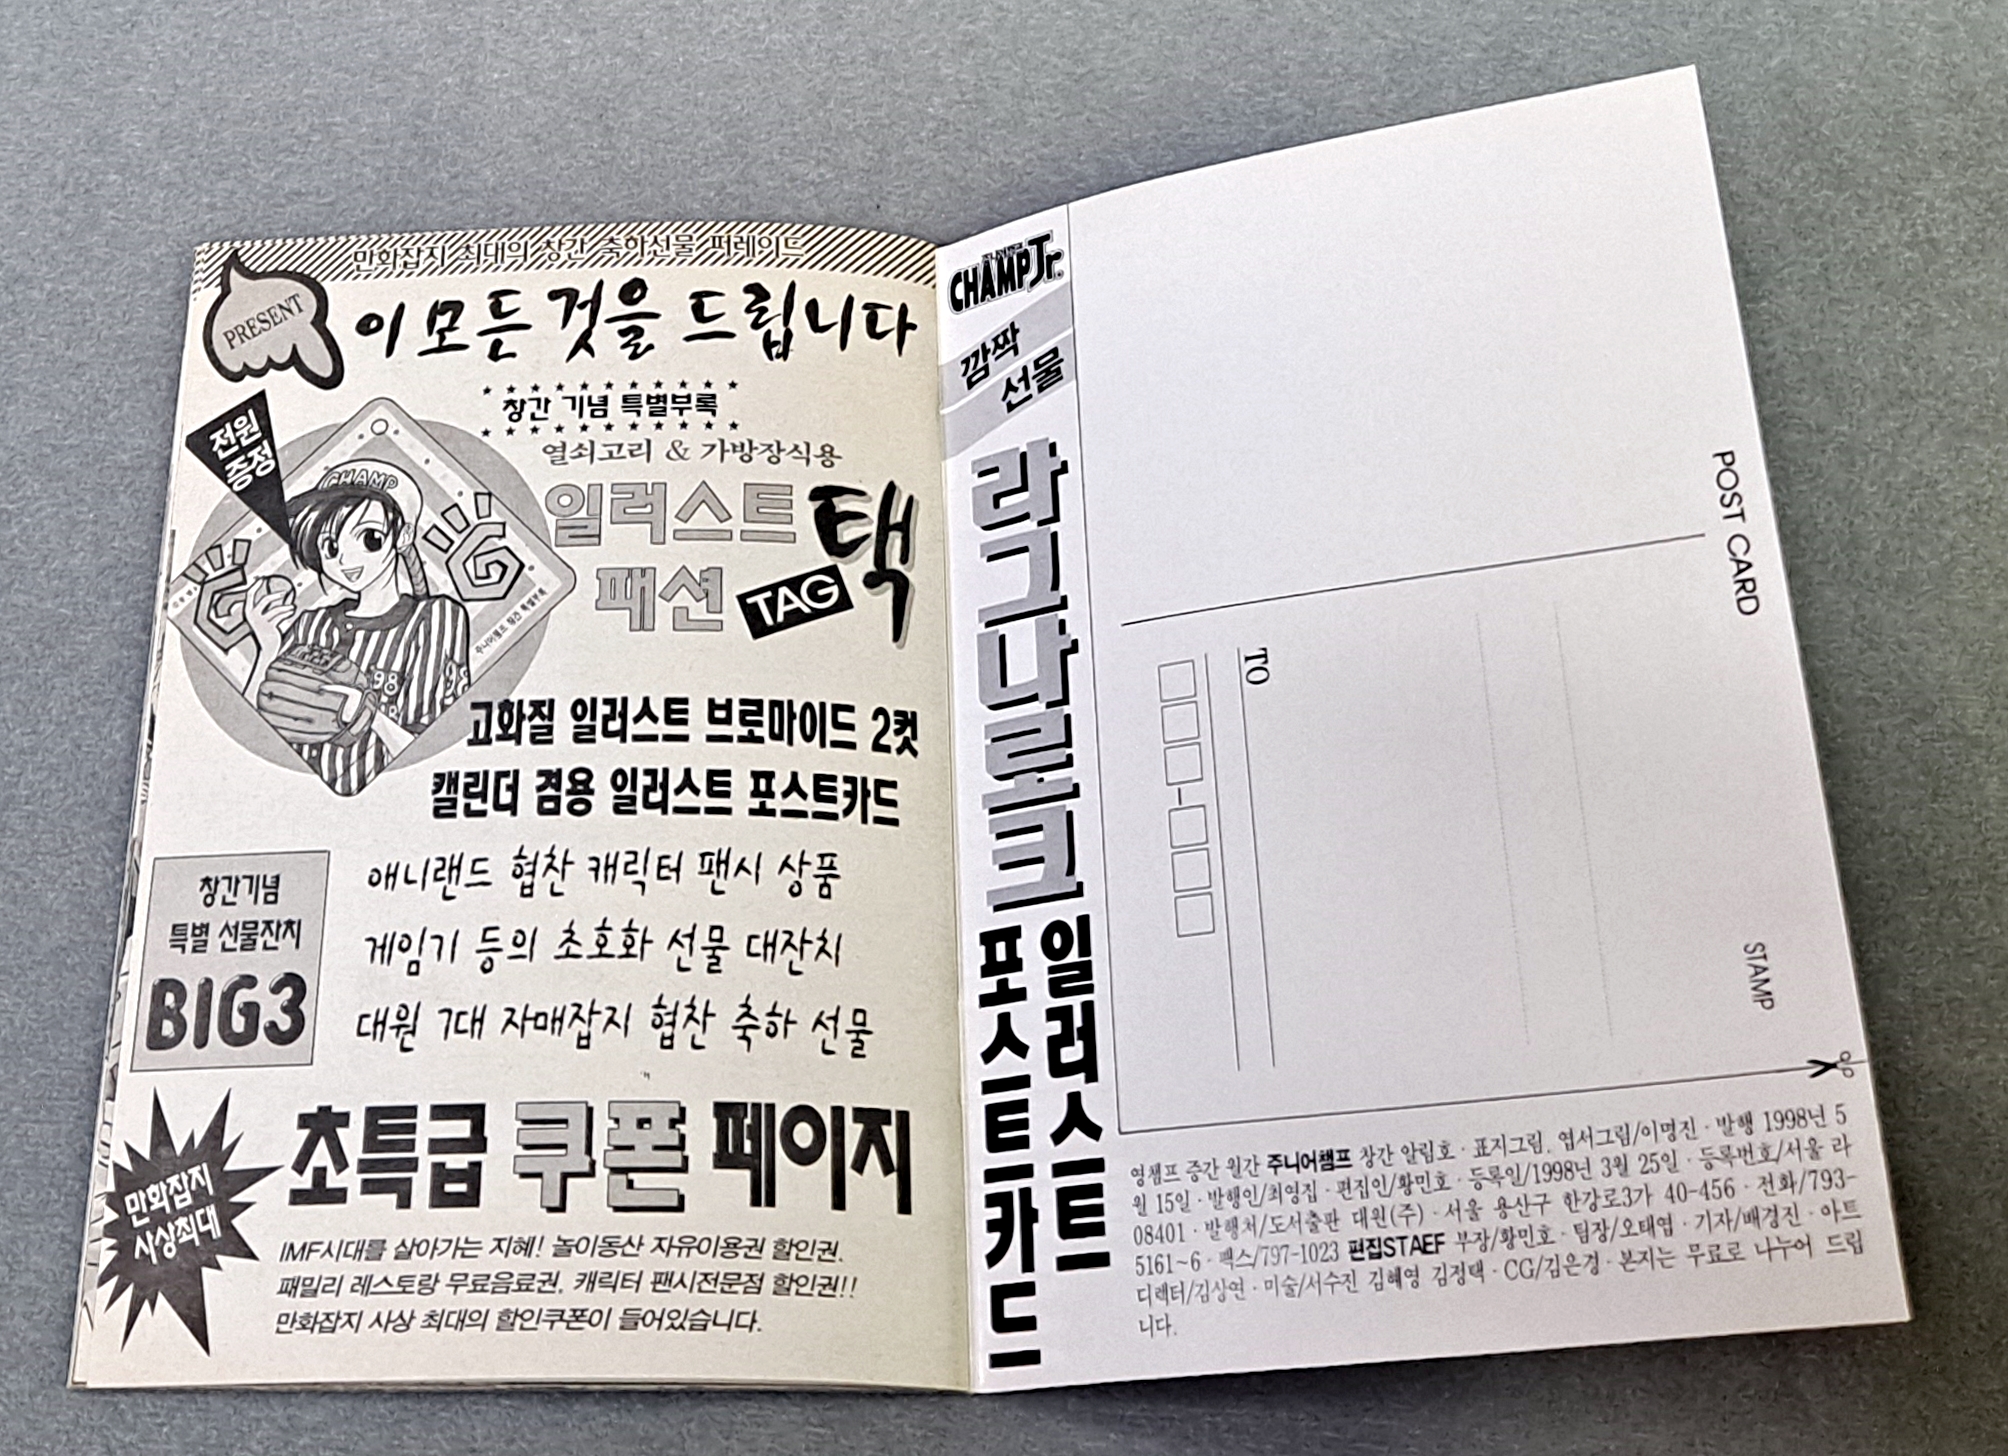 만화잡지 최대의 창간 축하선물 퍼레이드
PRESENT
이 모든 것을 드립니다
창간 기념 특별부록
열쇠고리 & 가방장식용
전원
증정
일러스트
패션
택
TAG
CHAMP
주니어챔프 창간 특별부록
98
고화질 일러스트 브로마이드 2컷
캘린더 겸용 일러스트 포스트카드
창간기념
특별 선물잔치
BIG3
애니랜드 협찬 캐릭터 팬시 상품
게임기 등의 초호화 선물 대잔치
대원 7대 자매잡지 협찬 축하 선물
만화잡지
사상최대
초특급 쿠폰 페이지
IMF시대를 살아가는 지혜! 놀이동산 자유이용권 할인권.
패밀리 레스토랑 무료음료권. 캐릭터 팬시전문점 할인권!!
만화잡지 사상 최대의 할인쿠폰이 들어있습니다.
CHAMP Jr.
깜짝
선물
라그나로크
일러스트
포스트카드
POST CARD
TO
STAMP
영챔프 증간 월간 주니어챔프 창간 알림호 · 표지그림. 엽서그림/이명진 · 발행 1998년 5
월 15일 · 발행인/최영집 · 편집인/황민호 · 등록일/1998년 3월 25일 · 등록번호/서울 라
08401 · 발행처/도서출판 대원(주) · 서울 용산구 한강로3가 40-456 · 전화/793-
5161~6 · 팩스/797-1023 편집STAEF 부장/황민호 · 팀장/오태엽 · 기자/배경진 · 아트
디렉터/김상연 · 미술/서수진 김혜영 김정택 · CG/김은경 · 본지는 무료로 나누어 드립
니다.